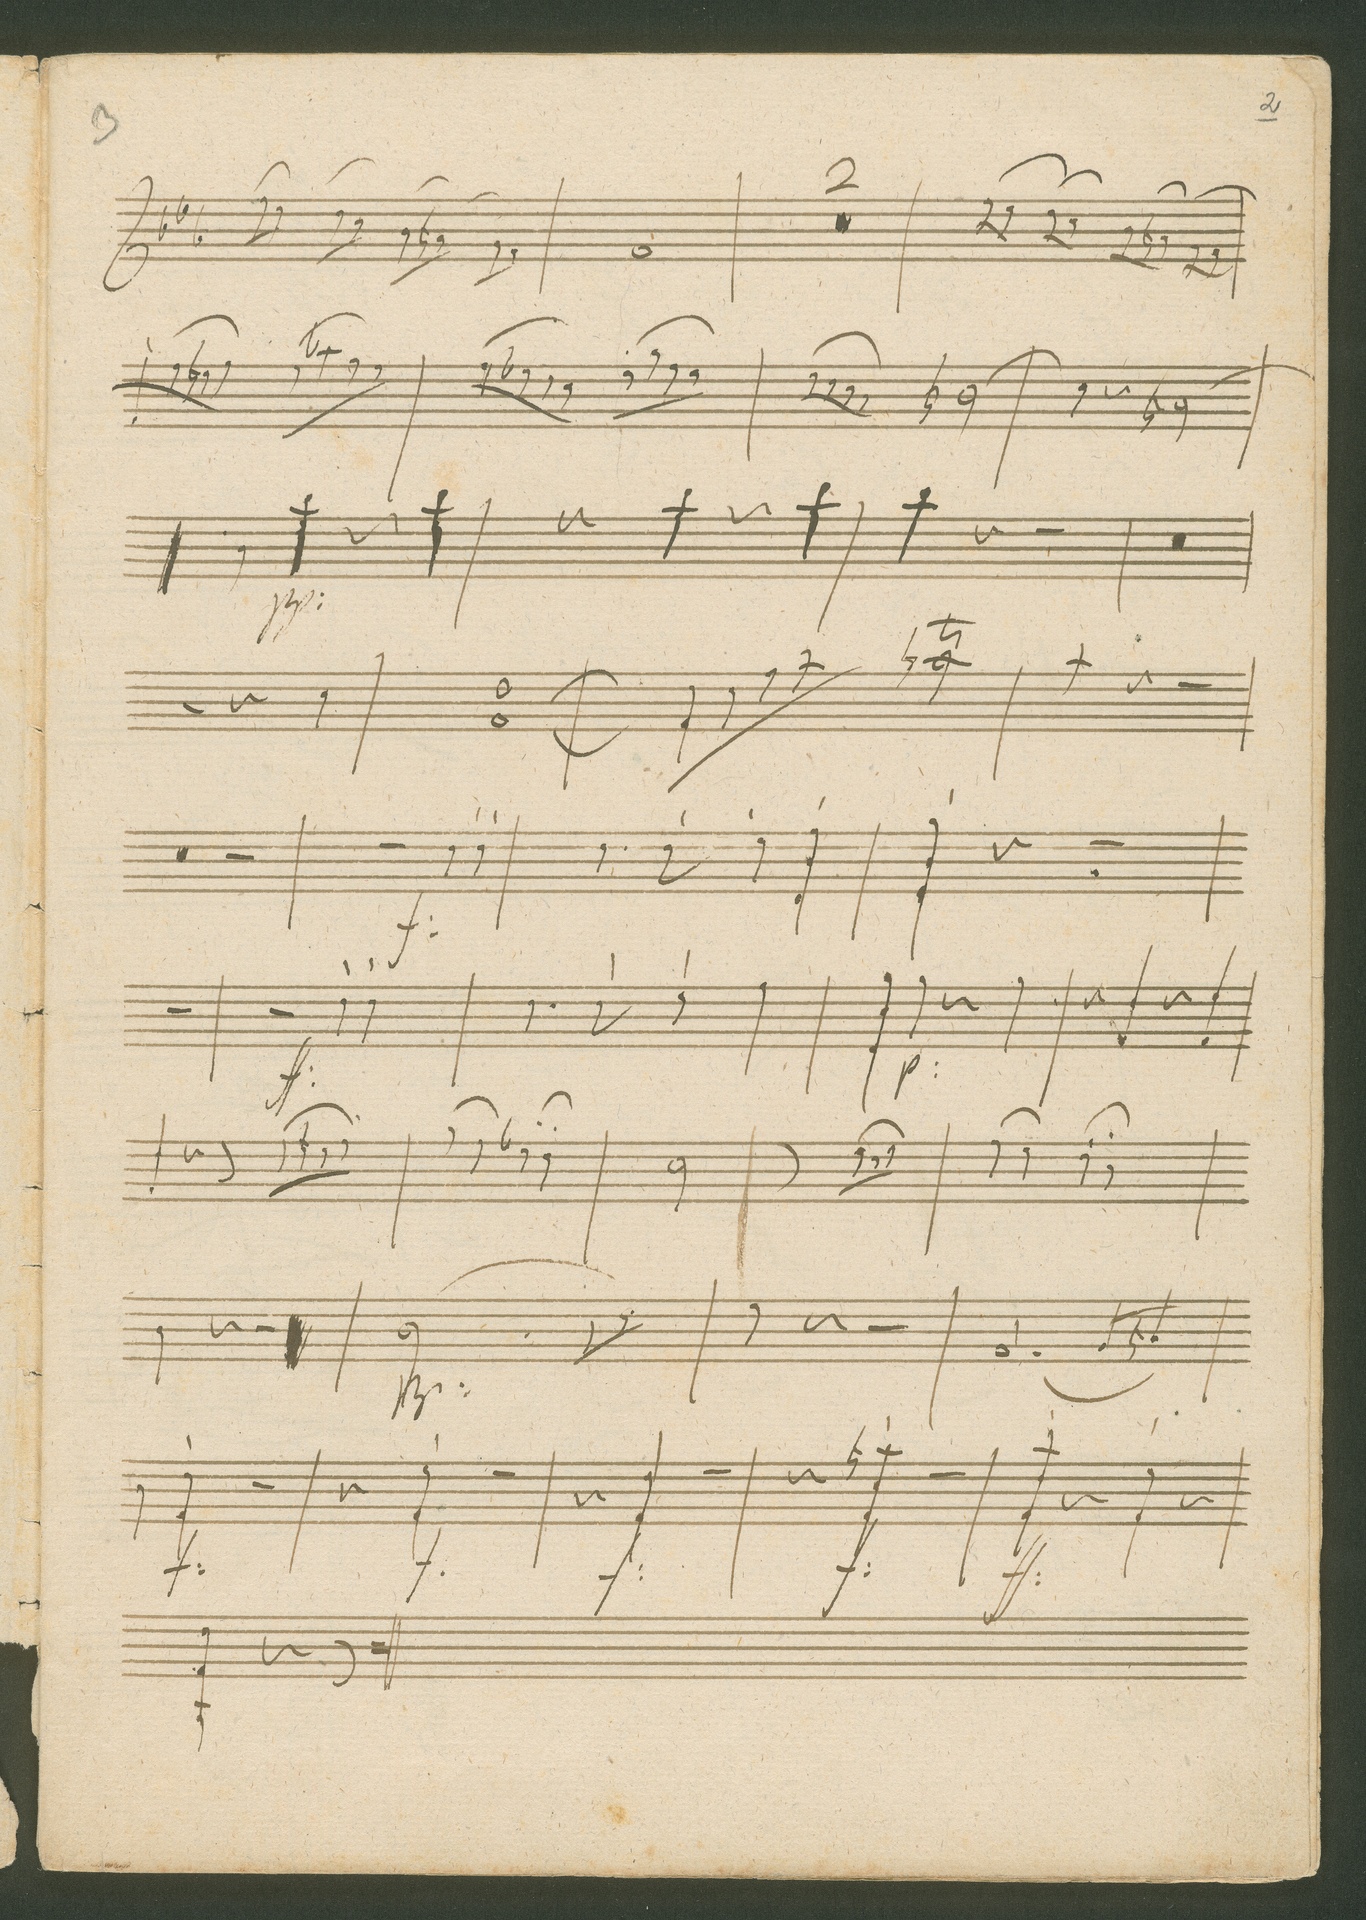 3
2
2
pp:
f:
ff:
p:
pp:
f: f. f: f: ff: